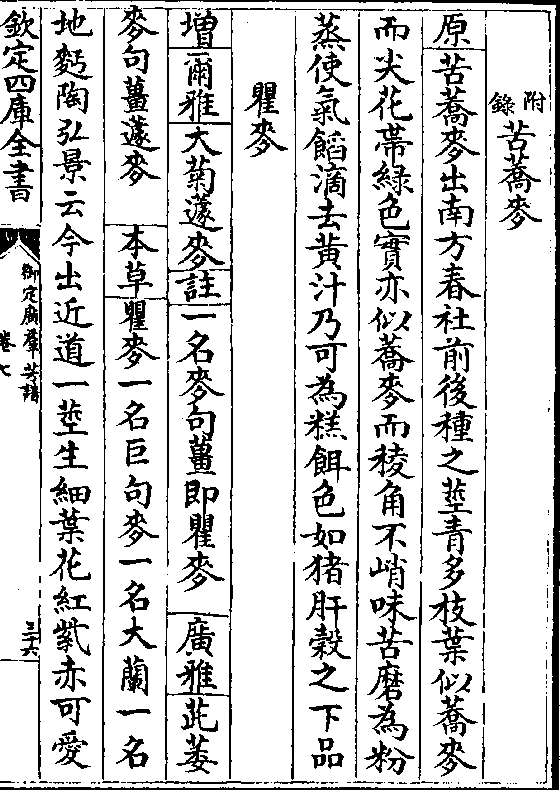 附錄苦蕎麥
原苦蕎麥出南方春社前後種之莖青多枝葉似蕎麥
而尖花帶綠色實亦似蕎麥而稜角不峭味苦磨為粉
蒸使氣餡滴去黃汁乃可為糕餌色如猪肝穀之下品
瞿麥
增爾雅大菊蘧麥註一名麥句薑即瞿麥 廣雅茈萎
麥句薑蘧麥 本草瞿麥一名巨句麥一名大蘭一名
地麪陶弘景云今出近道一莖生細葉花紅紫赤可愛
欽定四庫全書
御定廣羣芳譜
卷七
三十六